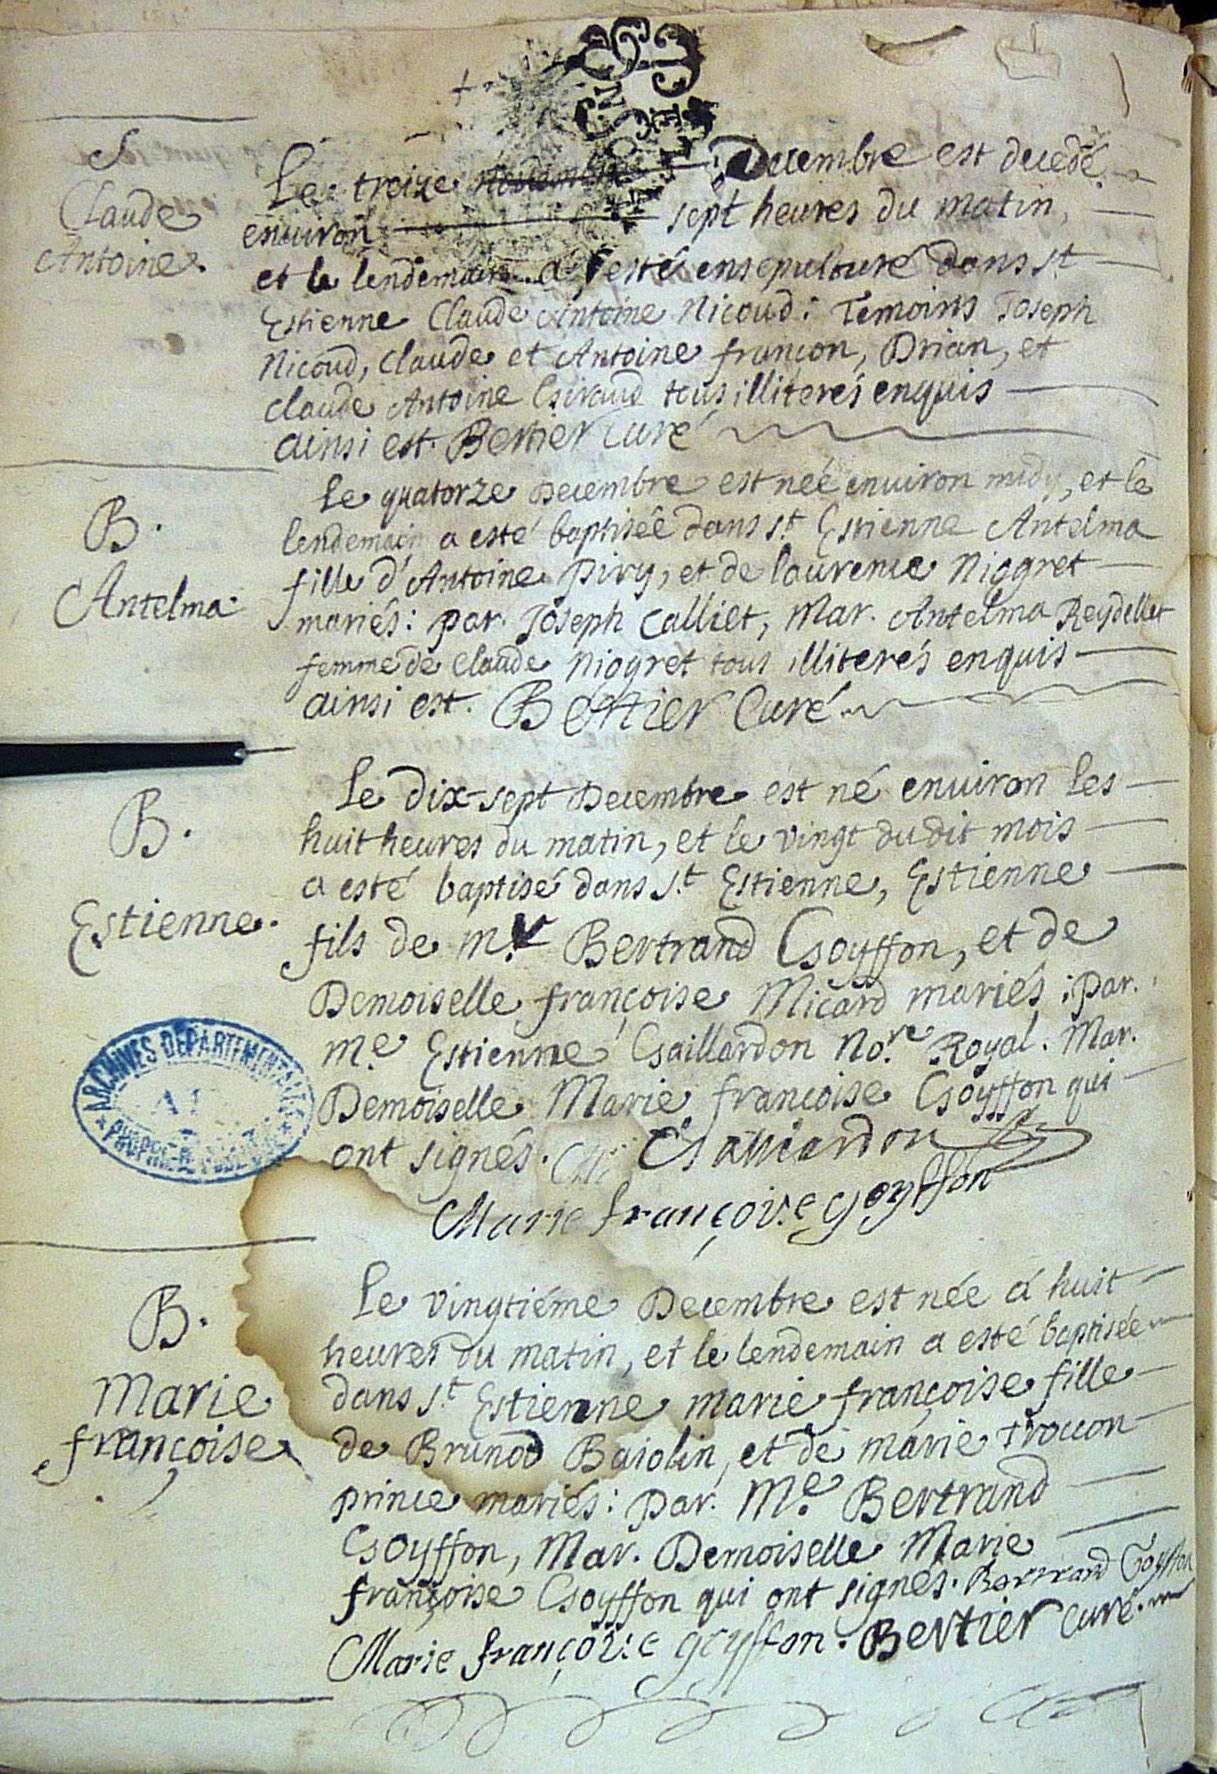 S
Claude
Antoine.
Le treize Decembre est decedé
environ sept heures du matin,
et le lendemain a esté ensepulturé dans st
Estienne Claude Antoine Nicoud: Temoins Joseph
Nicoud, Claude et Antoine françon, Brian, et
Claude Antoine Giraud tous illiterés enquis
ainsi est. Bertier Curé
B.
Antelma.
Le quatorze Decembre est née environ midy, et le
lendemain a esté baptisée dans st Estienne Antelma
fille d'Antoine Pivy, et de laurence Niogret
mariés: par. Joseph Calliet, Mar. Antelma Reydellet
femme de Claude Niogret tous illiterés enquis
ainsi est. Bertier Curé
B.
Estienne.
Le dix-sept Decembre est né environ les
huit heures du matin, et le vingt du dit mois
a esté baptisé dans S.t Estienne, Estienne
fils de M.r Bertrand Goyffon, et de
Demoiselle françoise Micard mariés; par.
M.e Estienne Gaillardon No.re Royal. Mar.
Demoiselle Marie françoise Goyffon qui
ont signés. Gailliardon
Marie françoise goyffon
ARCHIVES DEPARTEMENTALES
AIN
PROPRIÉTÉ PUBLIQUE
B.
Marie
françoise
Le vingtiéme Decembre est née á huit
heures du matin, et le lendemain a esté baptisée
dans S.t Estienne marie françoise fille
de Brunod Bajolin, et de marie trocon
prince mariés: par. M.e Bertrand
Goyffon, Mar. Demoiselle Marie
françoise Goyffon qui ont signés. Bertrand Goyffon
Marie françoise goyffon. Bertier Curé.